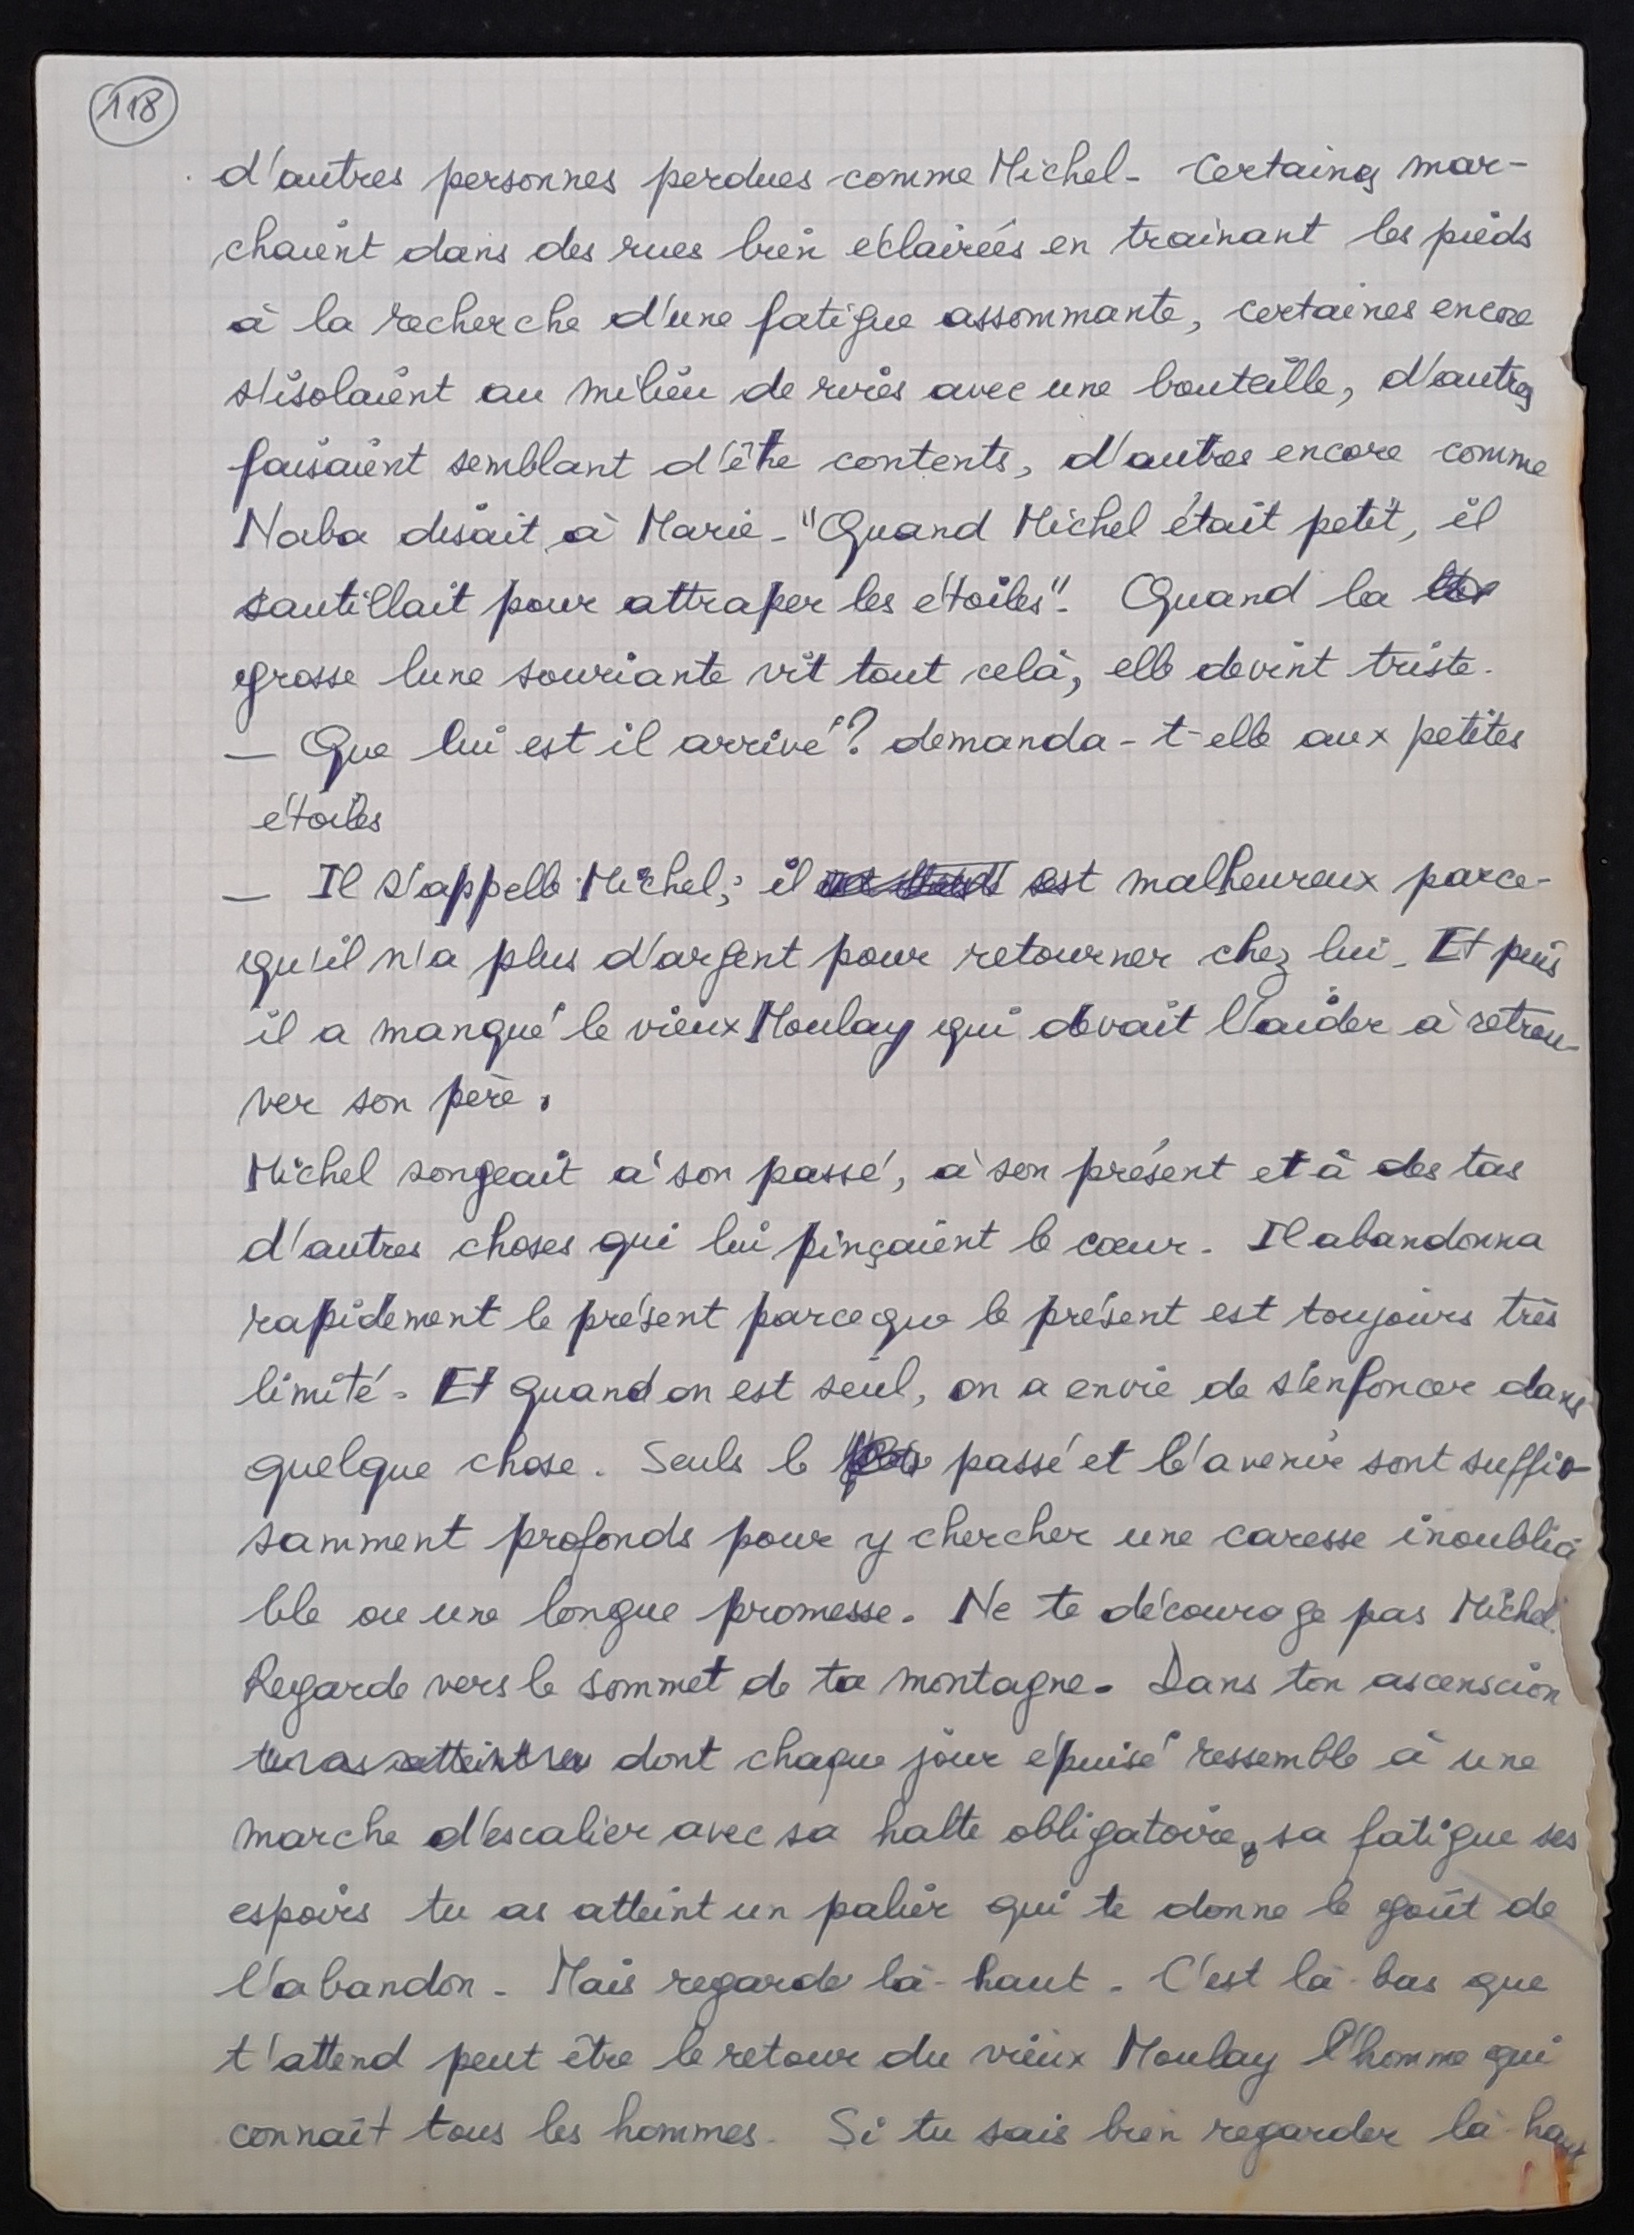 118
d'autres personnes perdues comme Michel - Certaines mar-
chaient dans des rues bien éclairées en trainant les pieds
à la recherche d'une fatigue assommante, certaines encore
s'isolaient au milieu de rires avec une bouteille, d'autres
faisaient semblant d'être contents, d'autres encore comme
Naba disait à Marie - "Quand Michel était petit, il
sautillait pour attraper les étoiles". Quand la
grosse lune souriante vit tout celà, elle devint triste.
— Que lui est il arrivé ? demanda-t-elle aux petites
étoiles
— Il s'appelle Michel ; il est malheureux parce-
qu'il n'a plus d'argent pour retourner chez lui - Et puis
il a manqué le vieux Moulay qui devait l'aider à retrou-
ver son père.
Michel songeait à son passé, à son présent et à des tas
d'autres choses qui lui pinçaient le cœur. Il abandonna
rapidement le présent parceque le présent est toujours très
limité - Et quand on est seul, on a envie de s'enfoncer dans
quelque chose. Seuls le passé et l'avenir sont suffi-
samment profonds pour y chercher une caresse inoublia
ble ou une longue promesse. Ne te décourage pas Michel.
Regarde vers le sommet de ta montagne. Dans ton ascenscion
tu as atteint un dont chaque jour épuisé ressemble à une
marche d'escalier avec sa halte obligatoire, sa fatigue ses
espoirs tu as atteint un palier qui te donne le goût de
l'abandon - Mais regarde là-haut. C'est là-bas que
t'attend peut être le retour du vieux Moulay l'homme qui
connaît tous les hommes. Si tu sais bien regarder là-haut